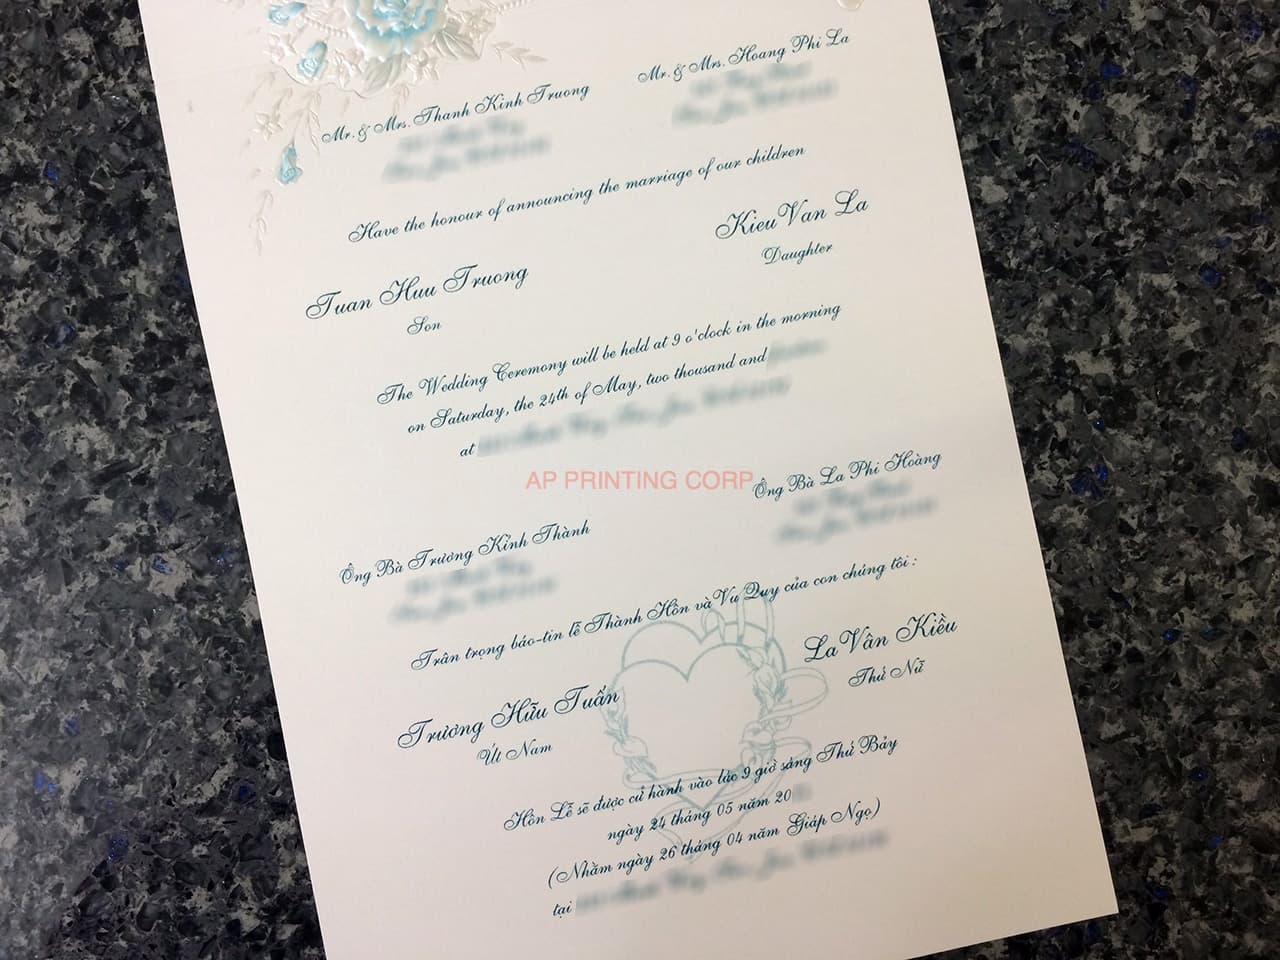 Mr. & Mrs. Thanh Kinh Truong
Mr. & Mrs. Hoang Phi La
Have the honour of announcing the marriage of our children
Tuan Huu Truong
Son
Kieu Van La
Daughter
The Wedding Ceremony will be held at 9 o'clock in the morning
on Saturday, the 24th of May, two thousand and
at
AP PRINTING CORP
Ông Bà Trương Kỉnh Thành
Ông Bà La Phi Hoàng
Trân trọng báo-tin lễ Thành Hôn và Vu Quy của con chúng tôi :
Trương Hữu Tuấn
Út Nam
La Vân Kiều
Thứ Nữ
Hôn Lễ sẽ được cử hành vào lúc 9 giờ sáng Thứ Bảy
ngày 24 tháng 05 năm 20
(Nhằm ngày 26 tháng 04 năm Giáp Ngọ)
tại